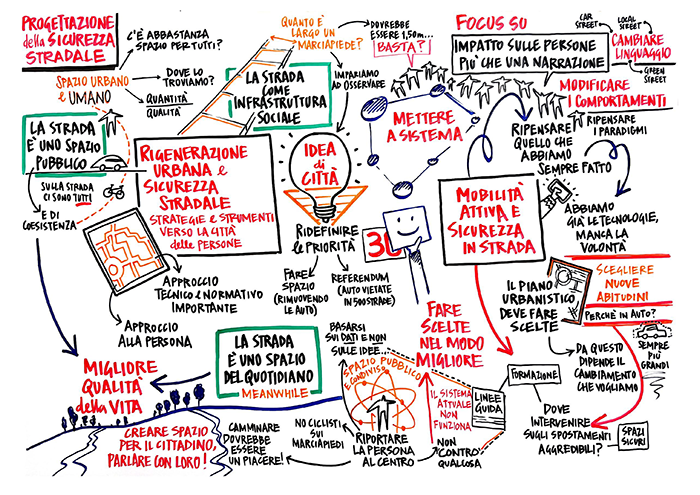 PROGETTAZIONE
della SICUREZZA
STRADALE
C'È ABBASTANZA
SPAZIO PER TUTTI?
SPAZIO URBANO
e UMANO
DOVE LO
TROVIAMO?
QUANTITÀ
QUALITÀ
QUANTO È
LARGO UN
MARCIAPIEDE?
DOVREBBE
ESSERE 1,50m...
BASTA?
IMPARIAMO
AD OSSERVARE
LA STRADA
COME
INFRASTRUTTURA
SOCIALE
FOCUS SU
IMPATTO SULLE PERSONE
PIU' CHE UNA NARRAZIONE
CAR
STREET
LOCAL
STREET
CAMBIARE
LINGUAGGIO
GREEN
STREET
MODIFICARE
I COMPORTAMENTI
RIPENSARE
I PARADIGMI
RIPENSARE
QUELLO CHE
ABBIAMO
SEMPRE FATTO
METTERE
A SISTEMA
LA STRADA
È UNO SPAZIO
PUBBLICO
SULLA STRADA
CI SONO TUTTI
E DI
COESISTENZA
RIGENERAZIONE
URBANA e
SICUREZZA
STRADALE
STRATEGIE e STRUMENTI
VERSO LA CITTÀ
delle PERSONE
IDEA
di
CITTÀ
RIDEFINIRE
le PRIORITÀ
30
FARE
SPAZIO
(RIMUOVENDO
LE AUTO)
REFERENDUM
(AUTO VIETATE
IN 500 STRADE)
MOBILITÀ
ATTIVA E
SICUREZZA
IN STRADA
ABBIAMO
GIÀ LE TECNOLOGIE,
MANCA LA
VOLONTÀ
SCEGLIERE
NUOVE
ABITUDINI
PERCHÈ IN AUTO?
SEMPRE
PIÙ
GRANDI
IL PIANO
URBANISTICO
DEVE FARE
SCELTE
DA QUESTO
DIPENDE IL
CAMBIAMENTO
CHE VOGLIAMO
APPROCCIO
TECNICO e NORMATIVO
IMPORTANTE
APPROCCIO
ALLA PERSONA
MIGLIORE
QUALITÀ
della VITA
LA STRADA
È UNO SPAZIO
DEL QUOTIDIANO
MEANWHILE
BASARSI
SUI DATI E NON
SULLE IDEE...
FARE
SCELTE
NEL MODO
MIGLIORE
SPAZIO PUBBLICO
E CONDIVISO
IL SISTEMA
ATTUALE
NON
FUNZIONA
LINEE
GUIDA
FORMAZIONE
DOVE
INTERVENIRE
SUGLI SPOSTAMENTI
AGGREDIBILI?
SPAZI
SICURI
CREARE SPAZIO
PER IL CITTADINO,
PARLARE CON LORO!
CAMMINARE
DOVREBBE
ESSERE
UN PIACERE!
NO CICLISTI
SUI
MARCIAPIEDI
RIPORTARE
LA PERSONA
AL CENTRO
NON "CONTRO"
QUALCOSA